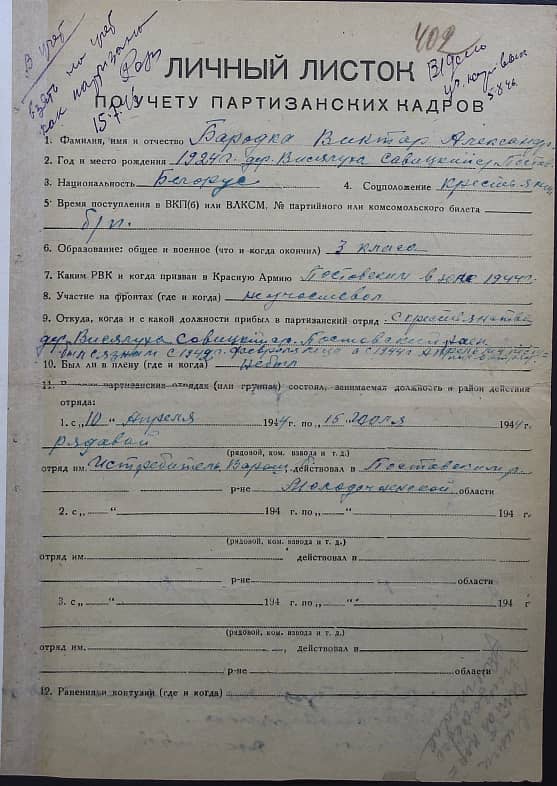 В учёт
взять на учёт
как партизана
15.7.48
402
ЛИЧНЫЙ ЛИСТОК
ПО УЧЕТУ ПАРТИЗАНСКИХ КАДРОВ
1. Фамилия, имя и отчество Бародка Виктар Александр.
2. Год и место рождения 1924 г. дер. Висялуха Савицкий с/с Постав.
3. Национальность Белорус 4. Соцположение крестьянин
5. Время поступления в ВКП(б) или ВЛКСМ, № партийного или комсомольского билета
б/п.
6. Образование: общее и военное (что и когда окончил) 3 класса
7. Каким РВК и когда призван в Красную Армию Поставским в 1944 г.
8. Участие на фронтах (где и когда) неучаствовал
9. Откуда, когда и с какой должности прибыл в партизанский отряд с крестьянства
дер. Висялуха Савицкий Поставский район
был связным с февраля а с 1944 г. Апреля
10. Был ли в плену (где и когда) небыл
11. В каких партизанских отрядах (или группах) состоял, занимаемая должность и район действия
отряда:
1. с „10“ Апреля 1944 г. по „15 Июля 1944 г.
рядавой
(рядовой, ком. взвода и т. д.)
отряд им. Истребитель Варош. действовал в Поставским р.
р-не Молодечненской области
2. с „ “ 194 г. по „ “ 194 г.
(рядовой, ком. взвода и т. д.)
отряд им. действовал в
р-не области
3. с „ “ 194 г. по „ “ 194 г.
(рядовой, ком. взвода и т. д.)
отряд им. , действовал в
р-не области
12. Ранения и контузии (где и когда)